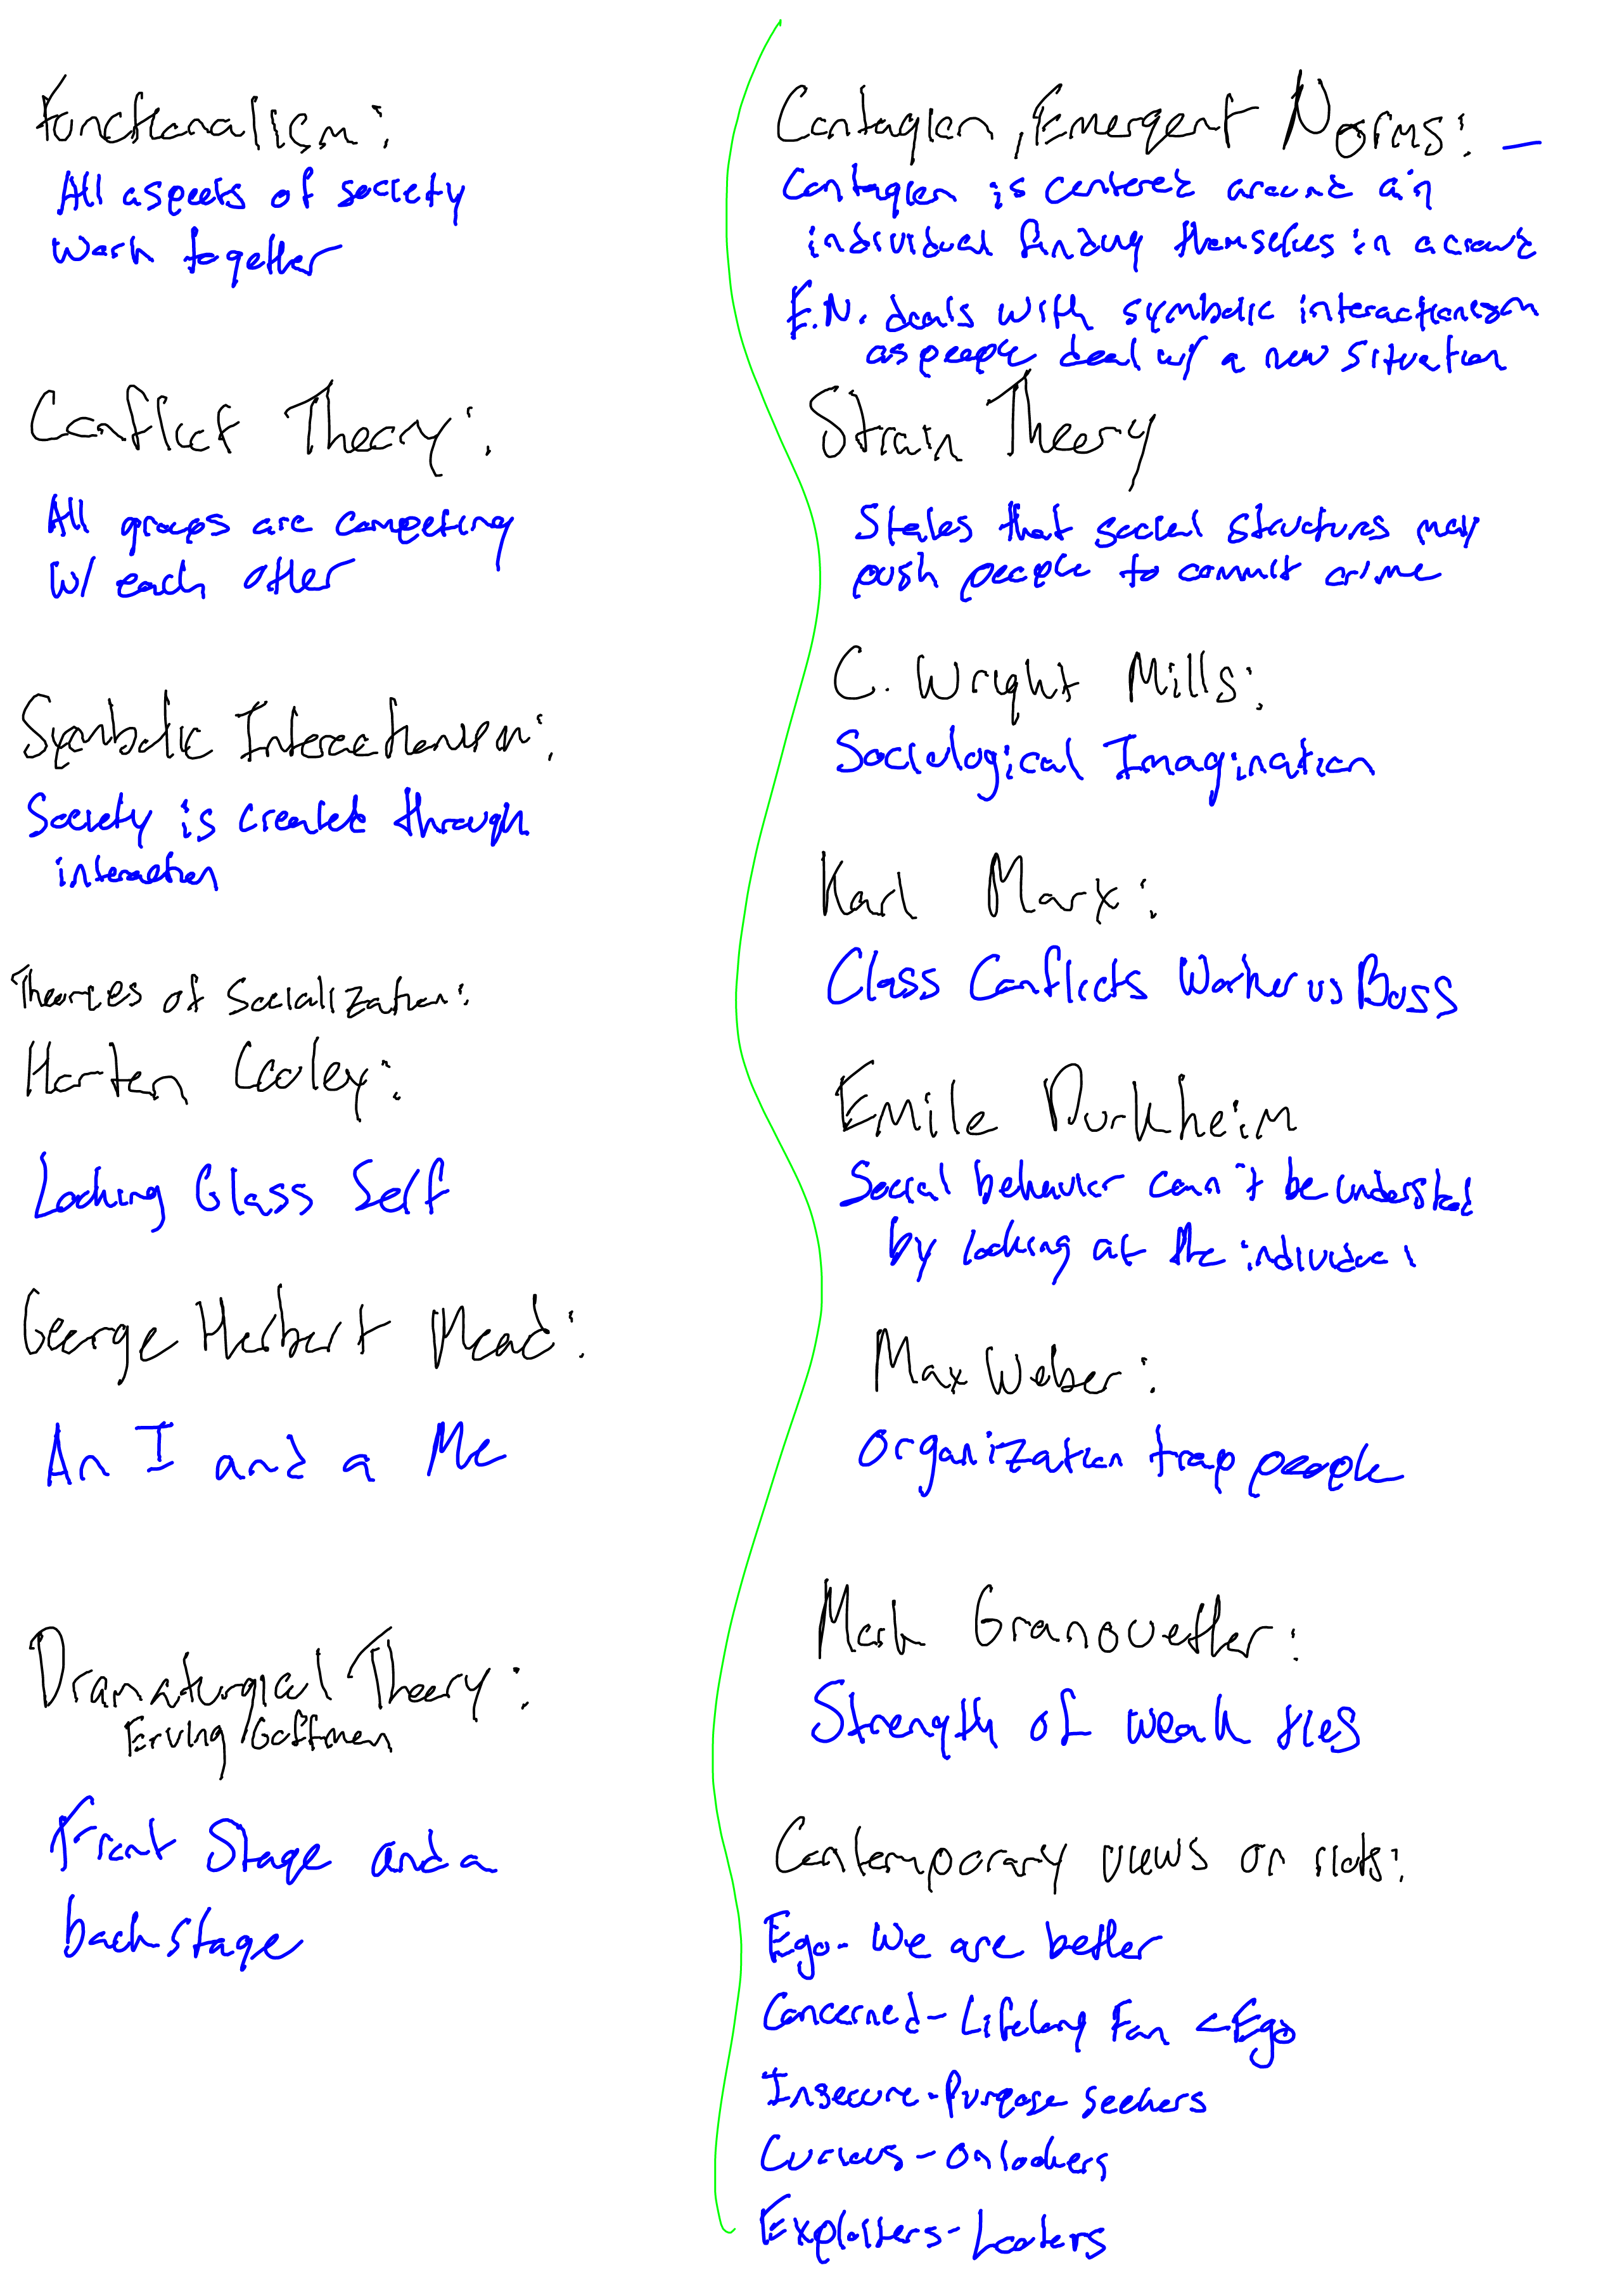 Functionalism:
All aspects of society
work together
Conflict Theory:
All groups are competing
w/ each other
Symbolic Interactionism:
Society is created through
interaction
Theories of Socialization:
Horten Cooley:
Looking Glass Self
George Herbert Mead:
An I and a Me
Dramaturgical Theory:
Erving Goffman
Front Stage and a
backstage
Contagion, Emergent Norms: —
Contagion is centered around an
individual finding themselves in a crowd
E.N. deals with symbolic interactionism
as people deal w/ a new situation
Strain Theory
States that social structures may
push people to commit crime
C. Wright Mills:
Sociological Imagination
Karl Marx:
Class Conflicts Worker vs Boss
Emile Durkheim
Social behavior can't be understood
by looking at the individual
Max Weber:
Organization trap people
Mark Granovetter:
Strength of weak ties
Contemporary views on riots:
Ego - We are better
Concerned - Lifelong Fan < Ego
Insecure - Purpose seekers
Curious - Onlookers
Exploiters - Looters